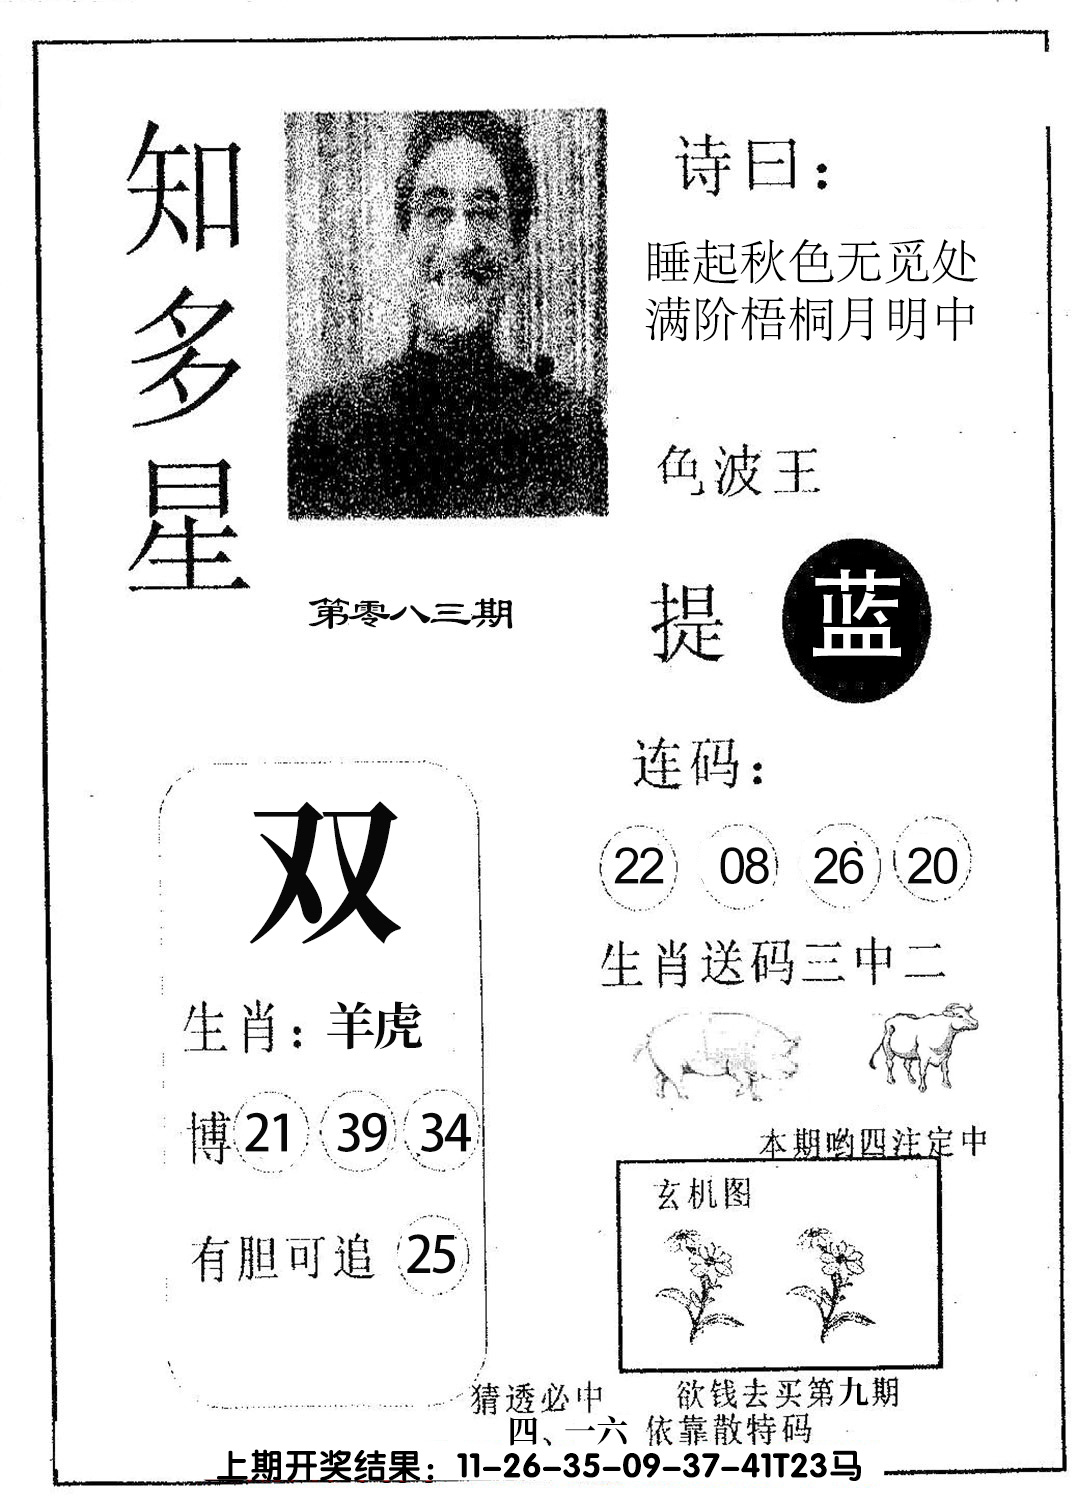 知多星
诗曰：
睡起秋色无觅处
满阶梧桐月明中
色波王
提 蓝
第零八三期
连码：
22 08 26 20
生肖送码三中二
双
生肖：羊虎
博 21 39 34
有胆可追 25
本期哟四注定中
玄机图
猜透必中 欲钱去买第九期
四、一六 依靠散特码
上期开奖结果：11-26-35-09-37-41T23马